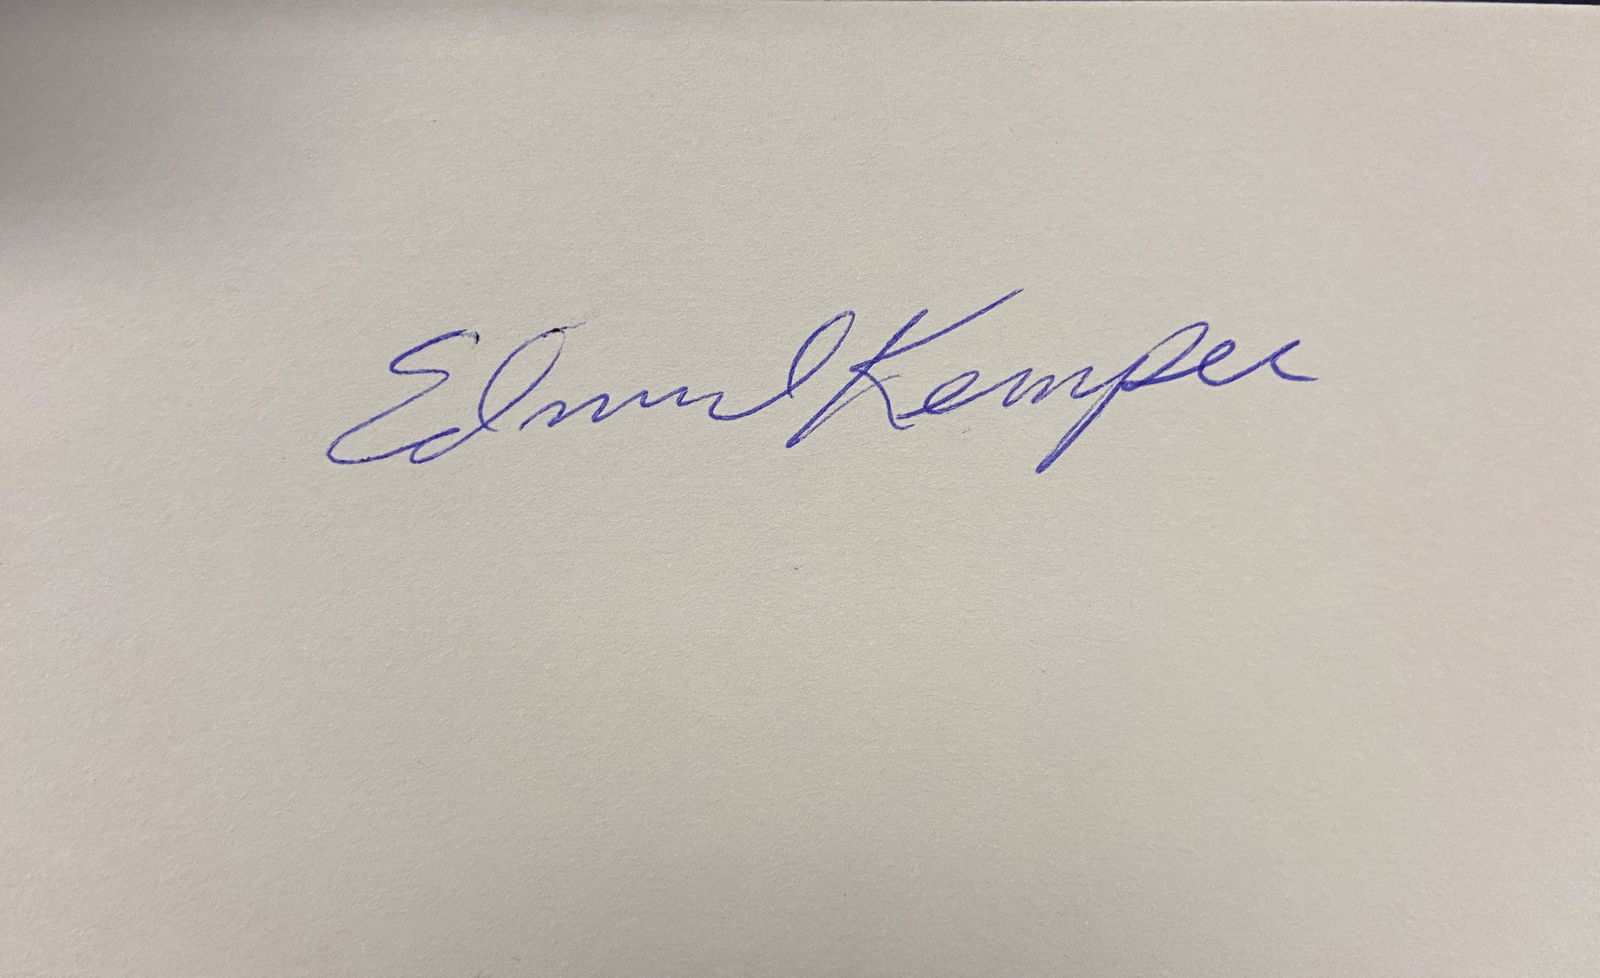 Edmund Kemper